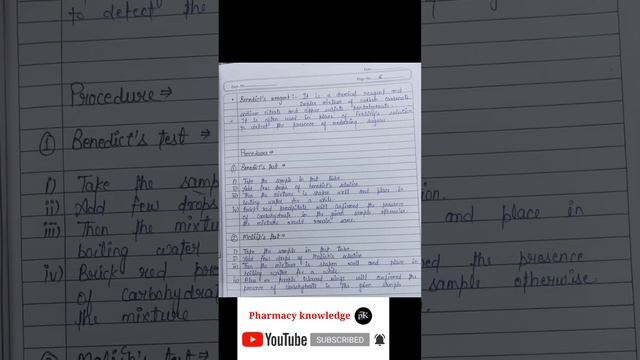 to detect the
Date
Page No. 6
• Benedict's reagent :- It is a chemical reagent and
complex mixture of sodium carbonate,
sodium citrate and copper sulfate pentahydrate.
• It is often used in place of Fehling's solution
to detect the presence of reducing sugars.
Procedure →
① Benedict's test →
i) Take the sample in test tube.
ii) Add few drops of benedict's solution.
iii) Then the mixture is shaken well and place in
boiling water for a while.
iv) Brick red precipitate will confirmed the presence
of carbohydrate in the given sample otherwise
the mixture would remain same.
② Molish's test →
i) Take the sample in test tube.
ii) Add few drops of Molish's solution
iii) Then the mixture is shaken well and place in
boiling water for a while.
iv) rings will confirmed the
presence of carbohydrate in the given sample.
Procedure →
① Benedict's test →
i) Take the samp
ii) Add few drops
iii) Then the mixture
boiling water
iv) Brick red pre
of carbohydra
the mixture
② Molish's test →
ion.
and place in
ed the presence
sample otherwise
Pharmacy knowledge
PK
YouTube
SUBSCRIBED